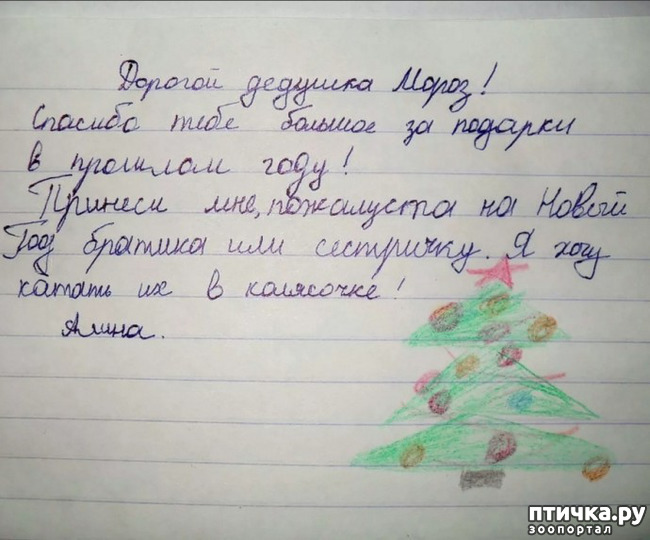 Дорогой дедушка Мороз!
Спасибо тебе большое за подарки
в прошлом году!
Принеси мне, пожалуста на Новый
Год братика или сестричку. Я хочу
катать их в калясочке!
Алина.
птичка.ру
зоопортал